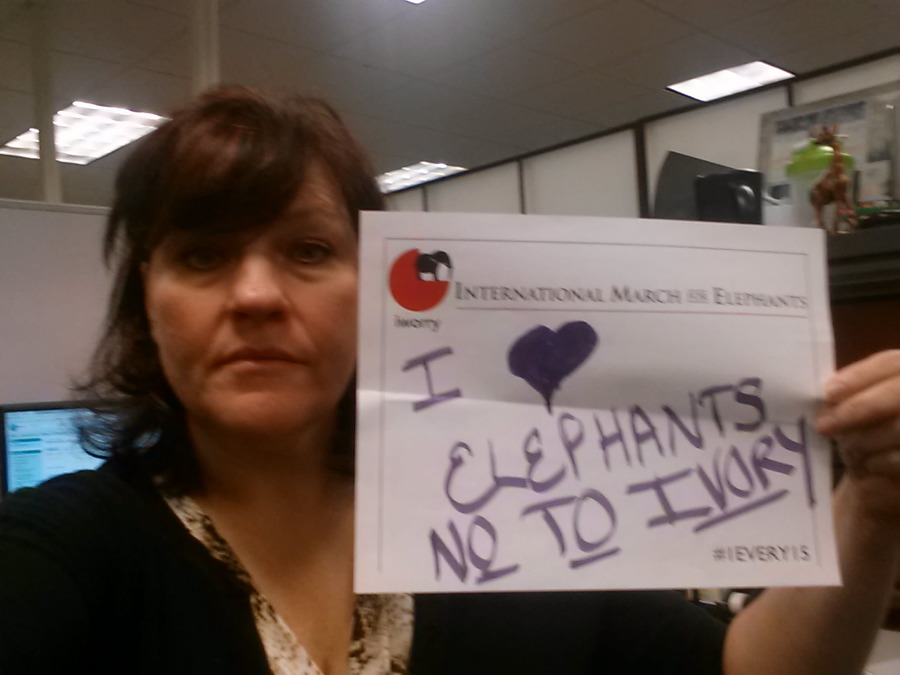 INTERNATIONAL MARCH FOR ELEPHANTS
iworry
I ♥
ELEPHANTS
NO TO IVORY
#1EVERY15